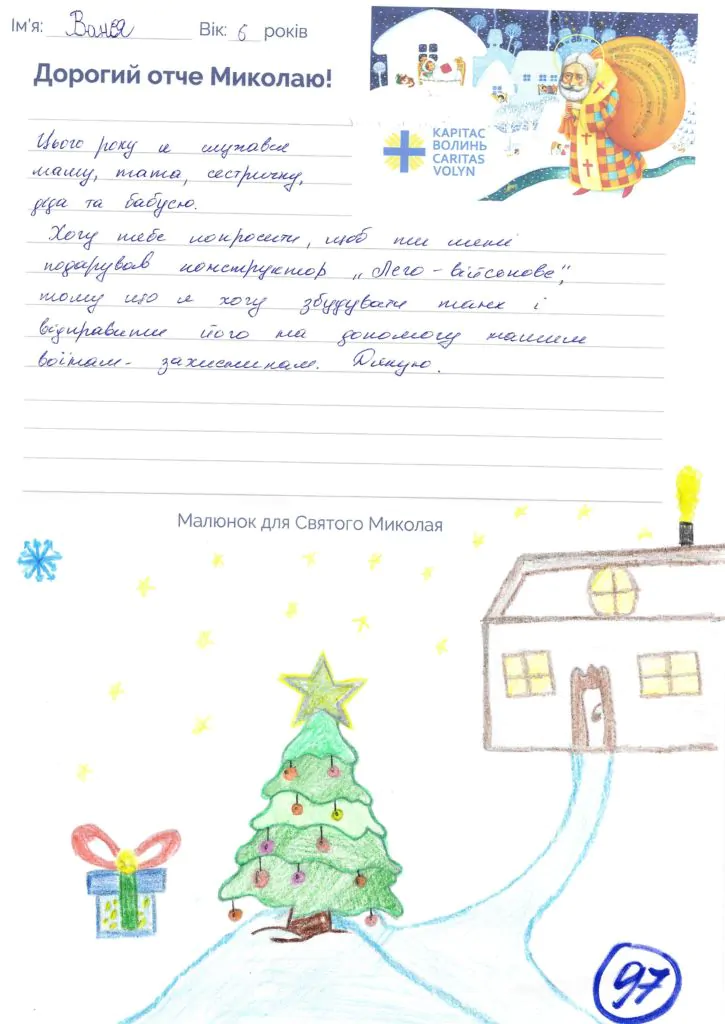 Ім'я: Ваня Вік: 6 років
Дорогий отче Миколаю!
КАРІТАС
ВОЛИНЬ
CARITAS
VOLYN
Цього року я слухався
маму, тата, сестричку,
діда та бабусю.
Хочу тебе попросити, щоб ти мені
подарував конструктор „Лего-військове",
тому що я хочу збудувати танк і
відправити його на допомогу нашим
воїнам- захисникам. Дякую.
Малюнок для Святого Миколая
97